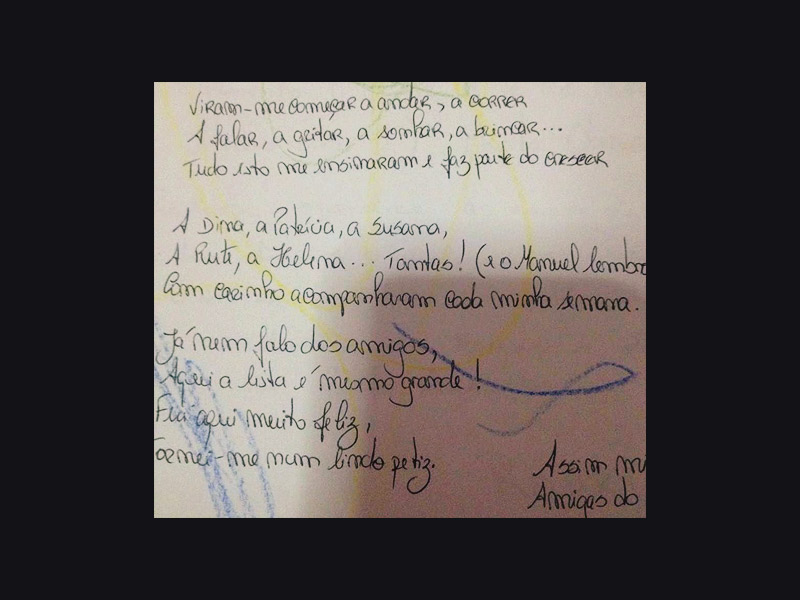 Viram-me começar a andar, a correr
A falar, a gritar, a sonhar, a brincar...
Tudo isto me ensinaram e faz parte do crescer
A Dina, a Patrícia, a Susana,
A Ruti, a Helena... Tantas! (e o Manuel lembro
Com carinho acompanharam cada minha semana.
Já nem falo dos amigos,
Aqui a lista é mesmo grande!
Fui aqui muito feliz,
Tornei-me num lindo petiz.
Assim mi
Amigas do